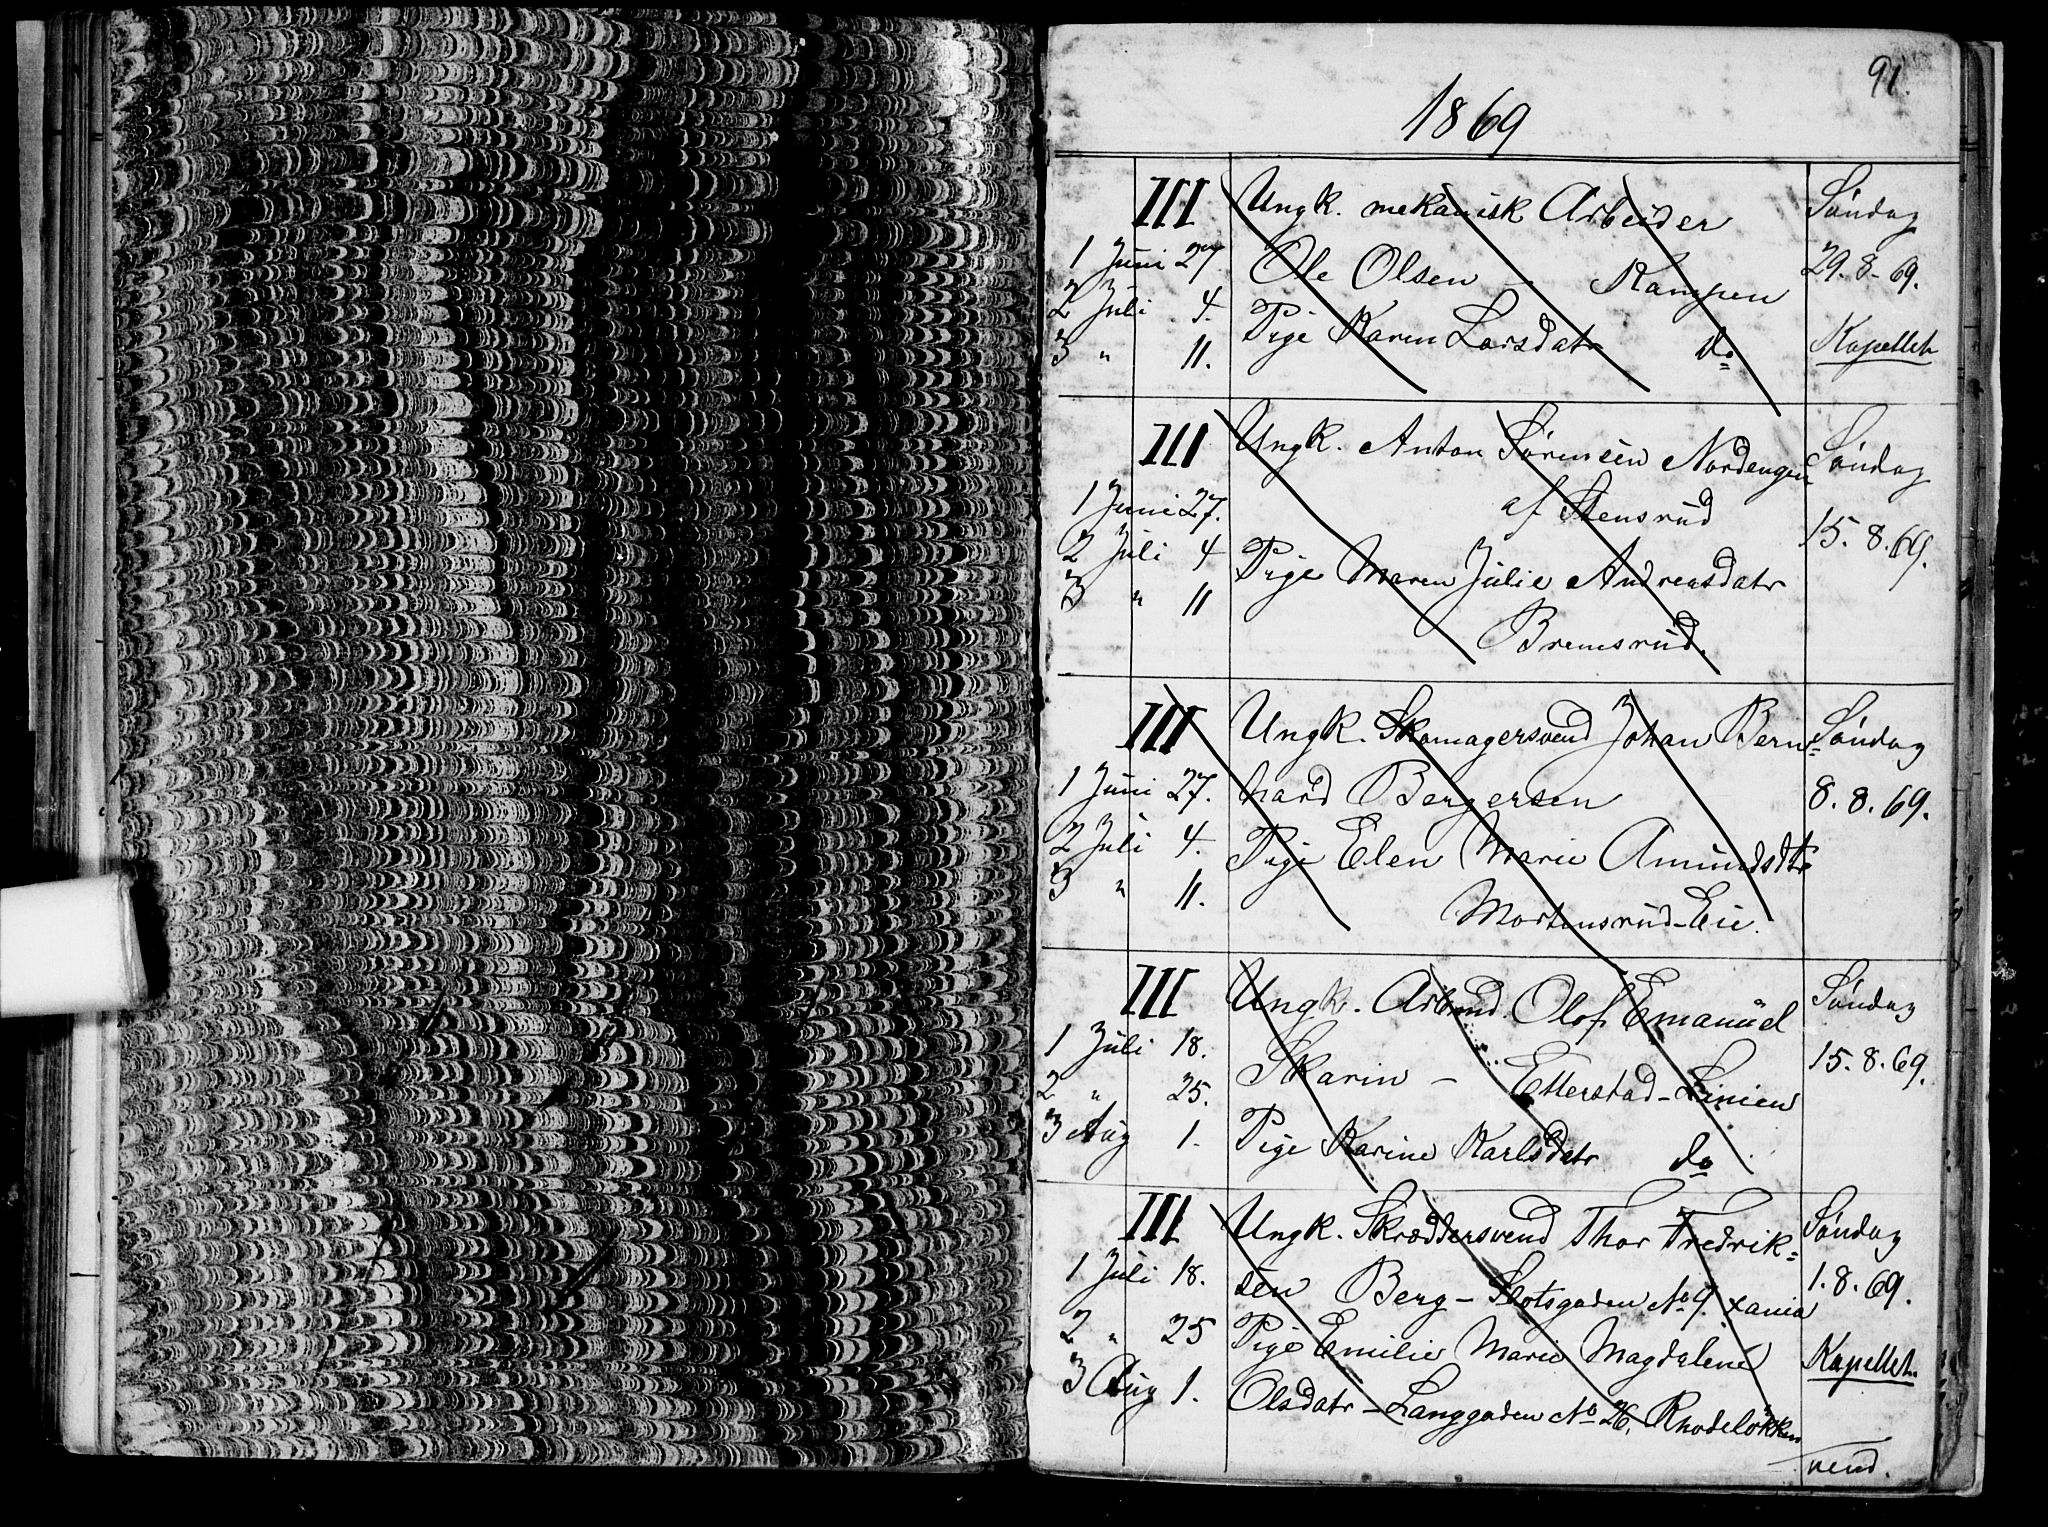 91.
1869
III Ungk. mekanisk Arbeider Søndag
1 Juni 27. Ole Olsen - Kampen 29. 8. 69.
2 Juli 4. Pige Karen Larsdatr do Kapellet
3 " 11.
III Ungk. Anton Sørensen Nordengen Søndag
1 Juni 27. af Stensrud 15. 8. 69.
2 Juli 4 Pige Maren Julie Andreasdatr
3 " 11 Bremsrud.
III Ungk. Skomagersvend Johan Bern= Søndag
1 Juni 27. hard Bergersen 8. 8. 69.
2 Juli 4. Pige Elen Marie Amundsdtr
3 " 11. Mortensrud-Eie.
III Ungk. Arbmd. Olof Emanuel Søndag
1 Juli 18. Skarin - Etterstad-Linien 15. 8. 69.
2 " 25.
3 Aug 1. Pige Karine Karlsdatr do
III Ungk. Skræddersvend Thor Fredrik= Søndag
1 Juli 18. sen Berg - Slotsgaden No 9. Xania 1. 8. 69.
2 " 25 Pige Emilie Marie Magdalene Kapellet.
3 Aug 1. Olsdatr - Langgaden No 26, Rhodeløkken
vend.